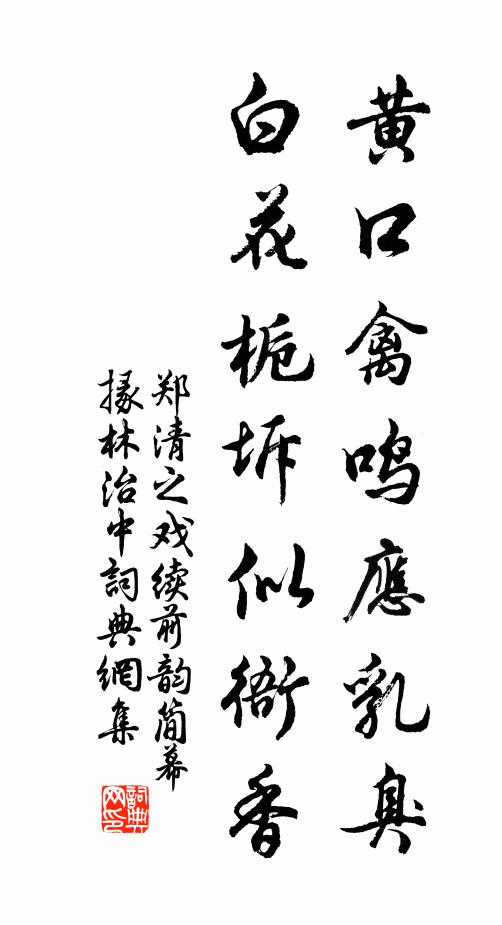 黄口禽鸣應乳臭
白花栀坼似衙香
郑清之戏续前韵简幕
掾林治中詞典網集
詞典网印